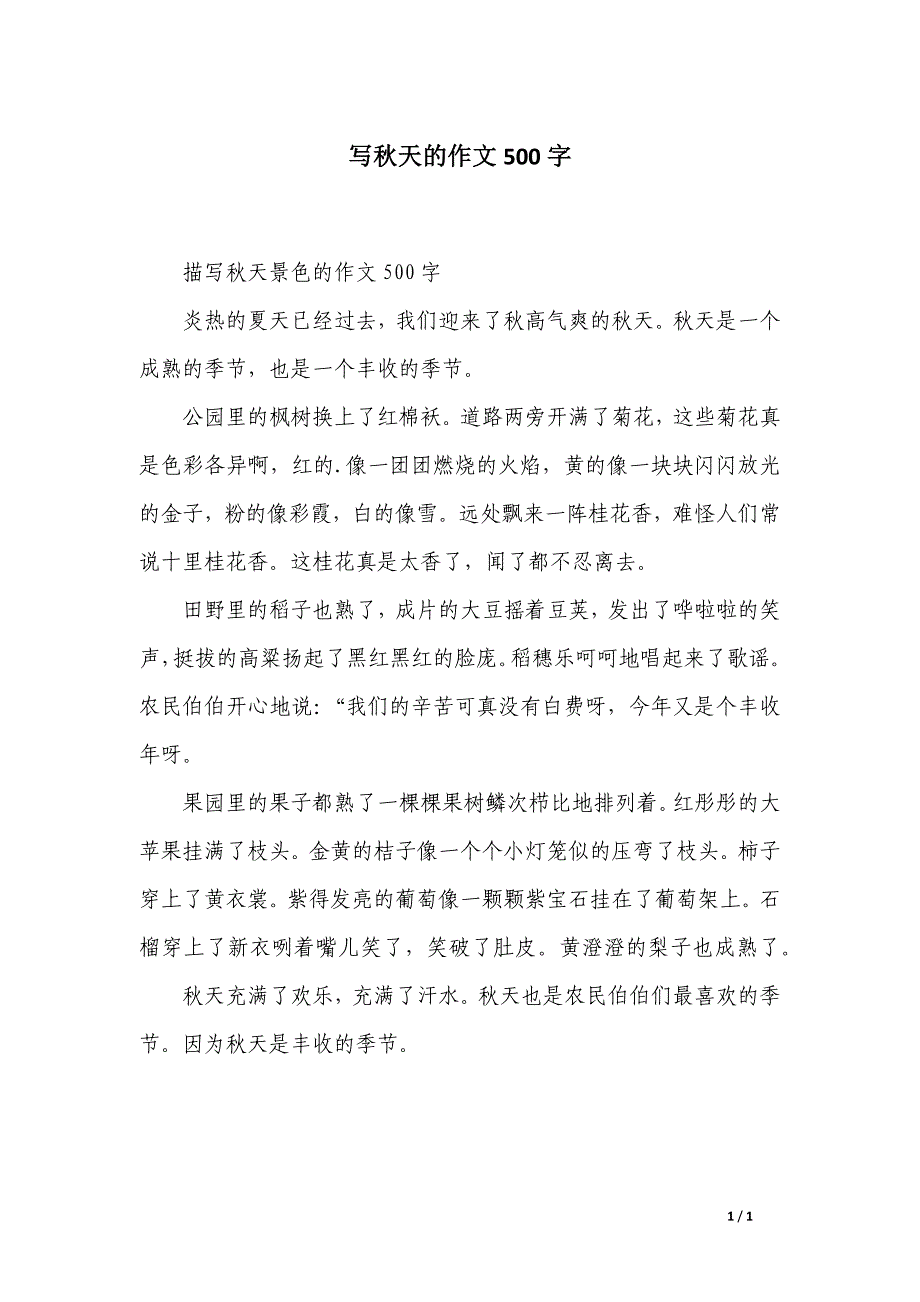 写秋天的作文 500 字
描写秋天景色的作文 500 字
炎热的夏天已经过去，我们迎来了秋高气爽的秋天。秋天是一个
成熟的季节，也是一个丰收的季节。
公园里的枫树换上了红棉袄。道路两旁开满了菊花，这些菊花真
是色彩各异啊，红的.像一团团燃烧的火焰，黄的像一块块闪闪放光
的金子，粉的像彩霞，白的像雪。远处飘来一阵桂花香，难怪人们常
说十里桂花香。这桂花真是太香了，闻了都不忍离去。
田野里的稻子也熟了，成片的大豆摇着豆荚，发出了哗啦啦的笑
声，挺拔的高粱扬起了黑红黑红的脸庞。稻穗乐呵呵地唱起来了歌谣。
农民伯伯开心地说：“我们的辛苦可真没有白费呀，今年又是个丰收
年呀。
果园里的果子都熟了一棵棵果树鳞次栉比地排列着。红彤彤的大
苹果挂满了枝头。金黄的桔子像一个个小灯笼似的压弯了枝头。柿子
穿上了黄衣裳。紫得发亮的葡萄像一颗颗紫宝石挂在了葡萄架上。石
榴穿上了新衣咧着嘴儿笑了，笑破了肚皮。黄澄澄的梨子也成熟了。
秋天充满了欢乐，充满了汗水。秋天也是农民伯伯们最喜欢的季
节。因为秋天是丰收的季节。
1 / 1